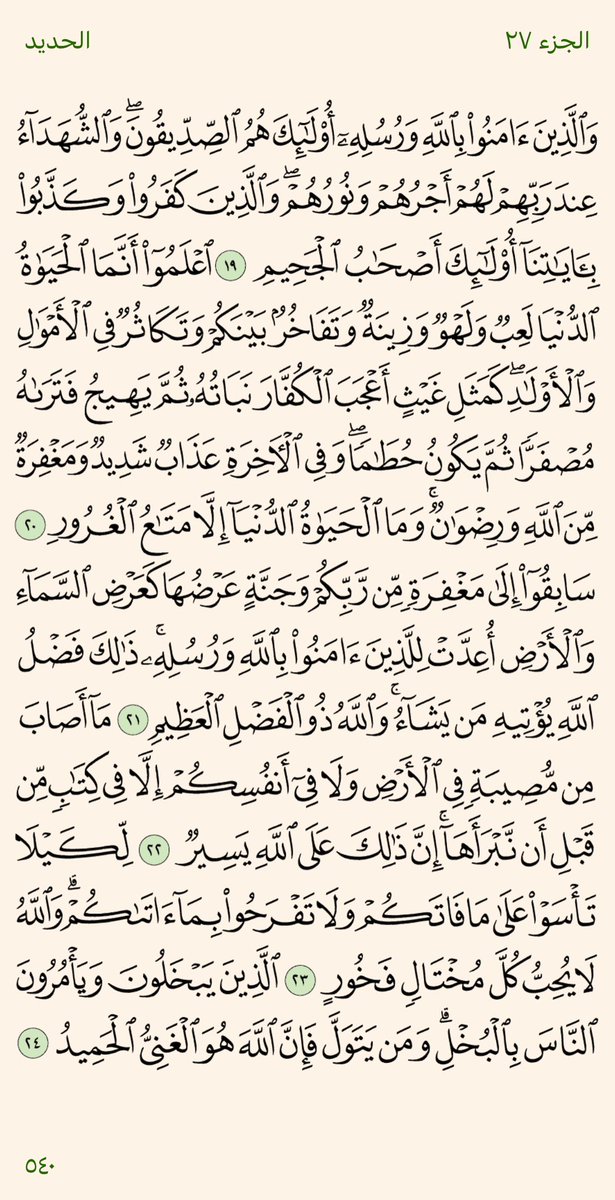 الجزء ٢٧
الحديد
وَٱلَّذِينَ ءَامَنُوا۟ بِٱللَّهِ وَرُسُلِهِۦٓ أُو۟لَـٰٓئِكَ هُمُ ٱلصِّدِّيقُونَ ۖ وَٱلشُّهَدَآءُ
عِندَ رَبِّهِمْ لَهُمْ أَجْرُهُمْ وَنُورُهُمْ ۖ وَٱلَّذِينَ كَفَرُوا۟ وَكَذَّبُوا۟
بِـَٔايَـٰتِنَآ أُو۟لَـٰٓئِكَ أَصْحَـٰبُ ٱلْجَحِيمِ ١٩ ٱعْلَمُوٓا۟ أَنَّمَا ٱلْحَيَوٰةُ
ٱلدُّنْيَا لَعِبٌ وَلَهْوٌ وَزِينَةٌ وَتَفَاخُرٌۢ بَيْنَكُمْ وَتَكَاثُرٌ فِى ٱلْأَمْوَٰلِ
وَٱلْأَوْلَـٰدِ ۖ كَمَثَلِ غَيْثٍ أَعْجَبَ ٱلْكُفَّارَ نَبَاتُهُۥ ثُمَّ يَهِيجُ فَتَرَىٰهُ
مُصْفَرًّا ثُمَّ يَكُونُ حُطَـٰمًا ۖ وَفِى ٱلْـَٔاخِرَةِ عَذَابٌ شَدِيدٌ وَمَغْفِرَةٌ
مِّنَ ٱللَّهِ وَرِضْوَٰنٌ ۚ وَمَا ٱلْحَيَوٰةُ ٱلدُّنْيَآ إِلَّا مَتَـٰعُ ٱلْغُرُورِ ٢٠
سَابِقُوٓا۟ إِلَىٰ مَغْفِرَةٍ مِّن رَّبِّكُمْ وَجَنَّةٍ عَرْضُهَا كَعَرْضِ ٱلسَّمَآءِ
وَٱلْأَرْضِ أُعِدَّتْ لِلَّذِينَ ءَامَنُوا۟ بِٱللَّهِ وَرُسُلِهِۦ ۚ ذَٰلِكَ فَضْلُ
ٱللَّهِ يُؤْتِيهِ مَن يَشَآءُ ۚ وَٱللَّهُ ذُو ٱلْفَضْلِ ٱلْعَظِيمِ ٢١ مَآ أَصَابَ
مِن مُّصِيبَةٍ فِى ٱلْأَرْضِ وَلَا فِىٓ أَنفُسِكُمْ إِلَّا فِى كِتَـٰبٍ مِّن
قَبْلِ أَن نَّبْرَأَهَآ ۚ إِنَّ ذَٰلِكَ عَلَى ٱللَّهِ يَسِيرٌ ٢٢ لِّكَيْلَا
تَأْسَوْا۟ عَلَىٰ مَا فَاتَكُمْ وَلَا تَفْرَحُوا۟ بِمَآ ءَاتَىٰكُمْ ۗ وَٱللَّهُ
لَا يُحِبُّ كُلَّ مُخْتَالٍ فَخُورٍ ٢٣ ٱلَّذِينَ يَبْخَلُونَ وَيَأْمُرُونَ
ٱلنَّاسَ بِٱلْبُخْلِ ۗ وَمَن يَتَوَلَّ فَإِنَّ ٱللَّهَ هُوَ ٱلْغَنِىُّ ٱلْحَمِيدُ ٢٤
٥٤٠